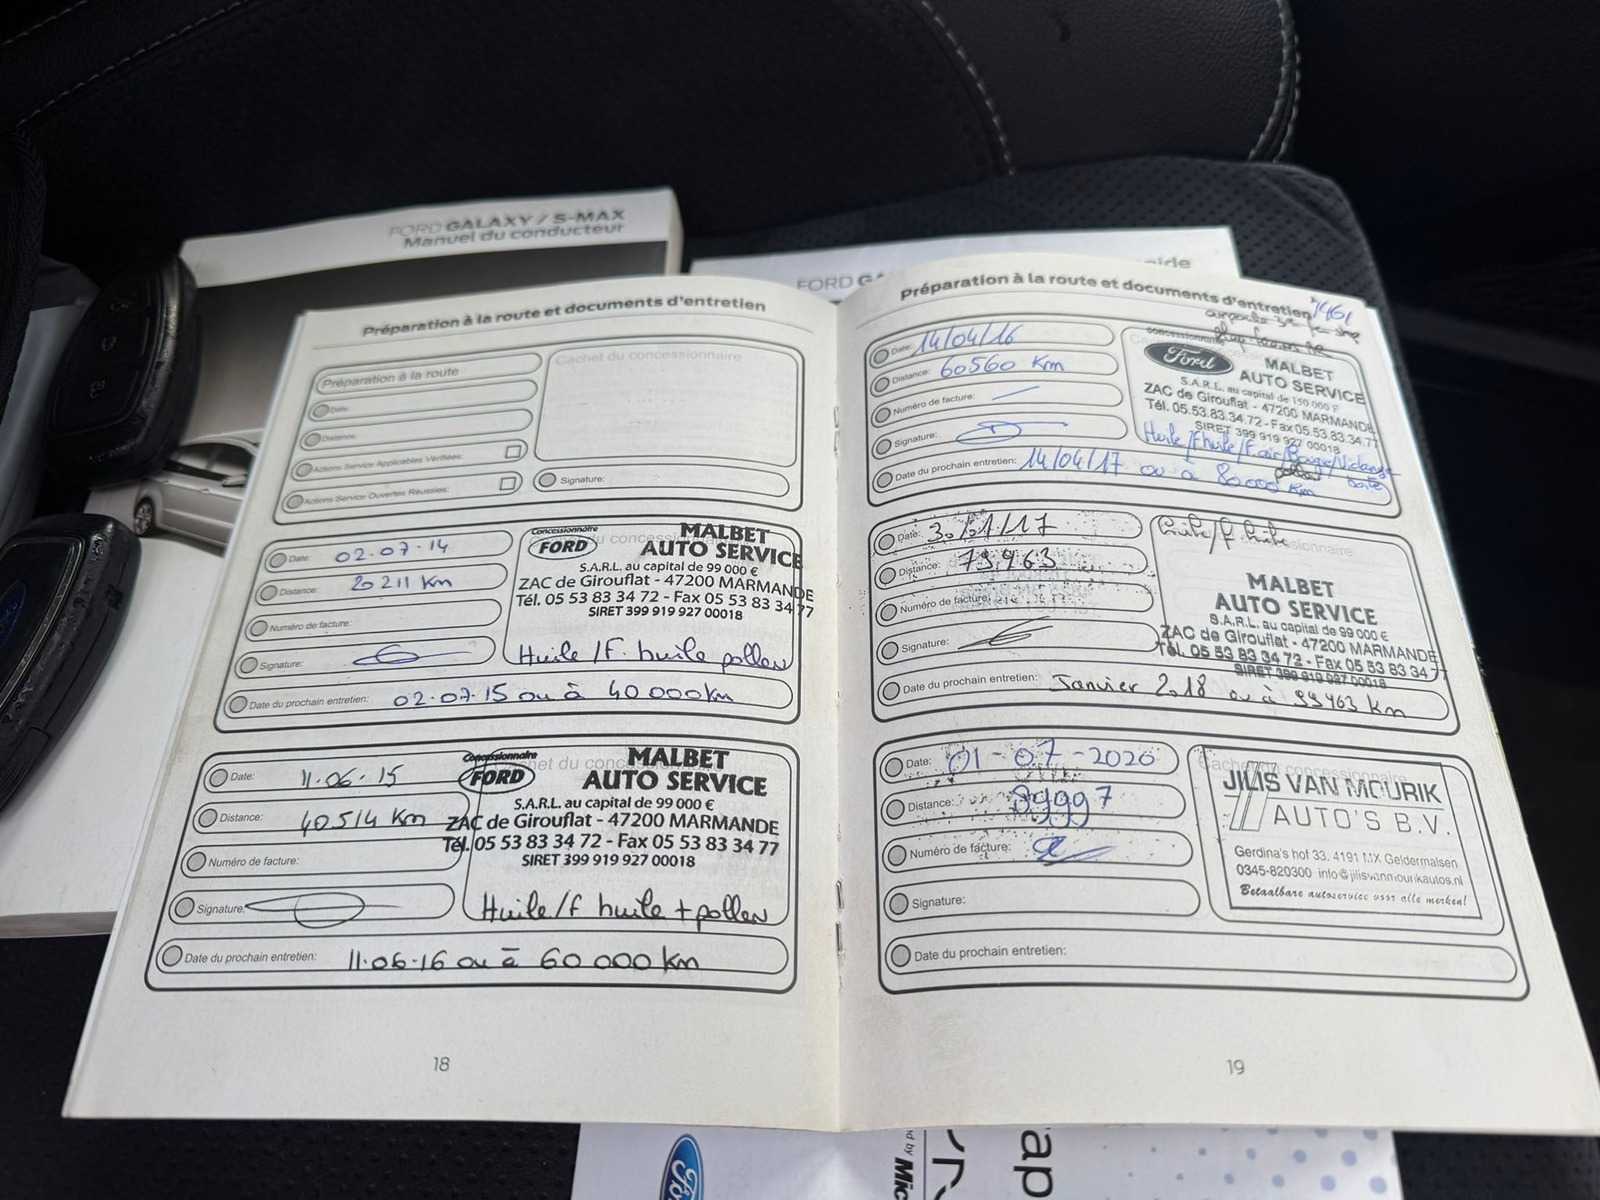 FORD GALAXY / S-MAX
Manuel du conducteur
FORD
Préparation à la route et documents d'entretien
Préparation à la route
Date:
Distance:
Actions Service Applicables Vérifiées:
Actions Service Ouvertes Réussies:
Cachet du concessionnaire
Signature:
Date: 02.07.14
Distance: 20211 Km
Numéro de facture:
Signature:
Concessionnaire
FORD
MALBET
AUTO SERVICE
S.A.R.L. au capital de 99 000 €
ZAC de Girouflat - 47200 MARMANDE
Tél. 05 53 83 34 72 - Fax 05 53 83 34 77
SIRET 399 919 927 00018
Huile /F. huile pollen
Date du prochain entretien: 02.07.15 ou à 40000km
Date: 11.06.15
Distance: 40514 Km
Numéro de facture:
Signature:
Concessionnaire
FORD
MALBET
AUTO SERVICE
S.A.R.L. au capital de 99 000 €
ZAC de Girouflat - 47200 MARMANDE
Tél. 05 53 83 34 72 - Fax 05 53 83 34 77
SIRET 399 919 927 00018
Huile/f huile + pollen
Date du prochain entretien: 11.06.16 ou à 60 000 km
18
Préparation à la route et documents d'entretien
Date: 14/04/16
Distance: 60560 Km
Numéro de facture:
Signature:
Ford
MALBET
AUTO SERVICE
S.A.R.L. au capital de 150.000 F
ZAC de Girouflat - 47200 MARMANDE
Tél. 05.53.83.34.72 - Fax 05.53.83.34.77
SIRET 399 919 927 00018
Huile/Fhuile/F.air/Bougie/Vidange
pollen boite
Date du prochain entretien: 14/04/17 ou à 80000 Km
Date: 30/01/17
Distance: 79463
Numéro de facture:
Signature:
Huile/f. huile
MALBET
AUTO SERVICE
S.A.R.L. au capital de 99 000 €
ZAC de Girouflat - 47200 MARMANDE
Tél. 05 53 83 34 72 - Fax 05 53 83 34 77
SIRET 399 919 927 00018
Date du prochain entretien: Janvier 2018 ou à 99463 Km
Date: 01-07-2020
Distance: 89997
Numéro de facture:
Signature:
Cachet du concessionnaire
JILIS VAN MOURIK
AUTO'S B.V.
Gerdina's hof 33, 4191 MX Geldermalsen
0345-820300 info@jilisvanmourikautos.nl
Betaalbare autoservice voor alle merken!
Date du prochain entretien:
19
Ford